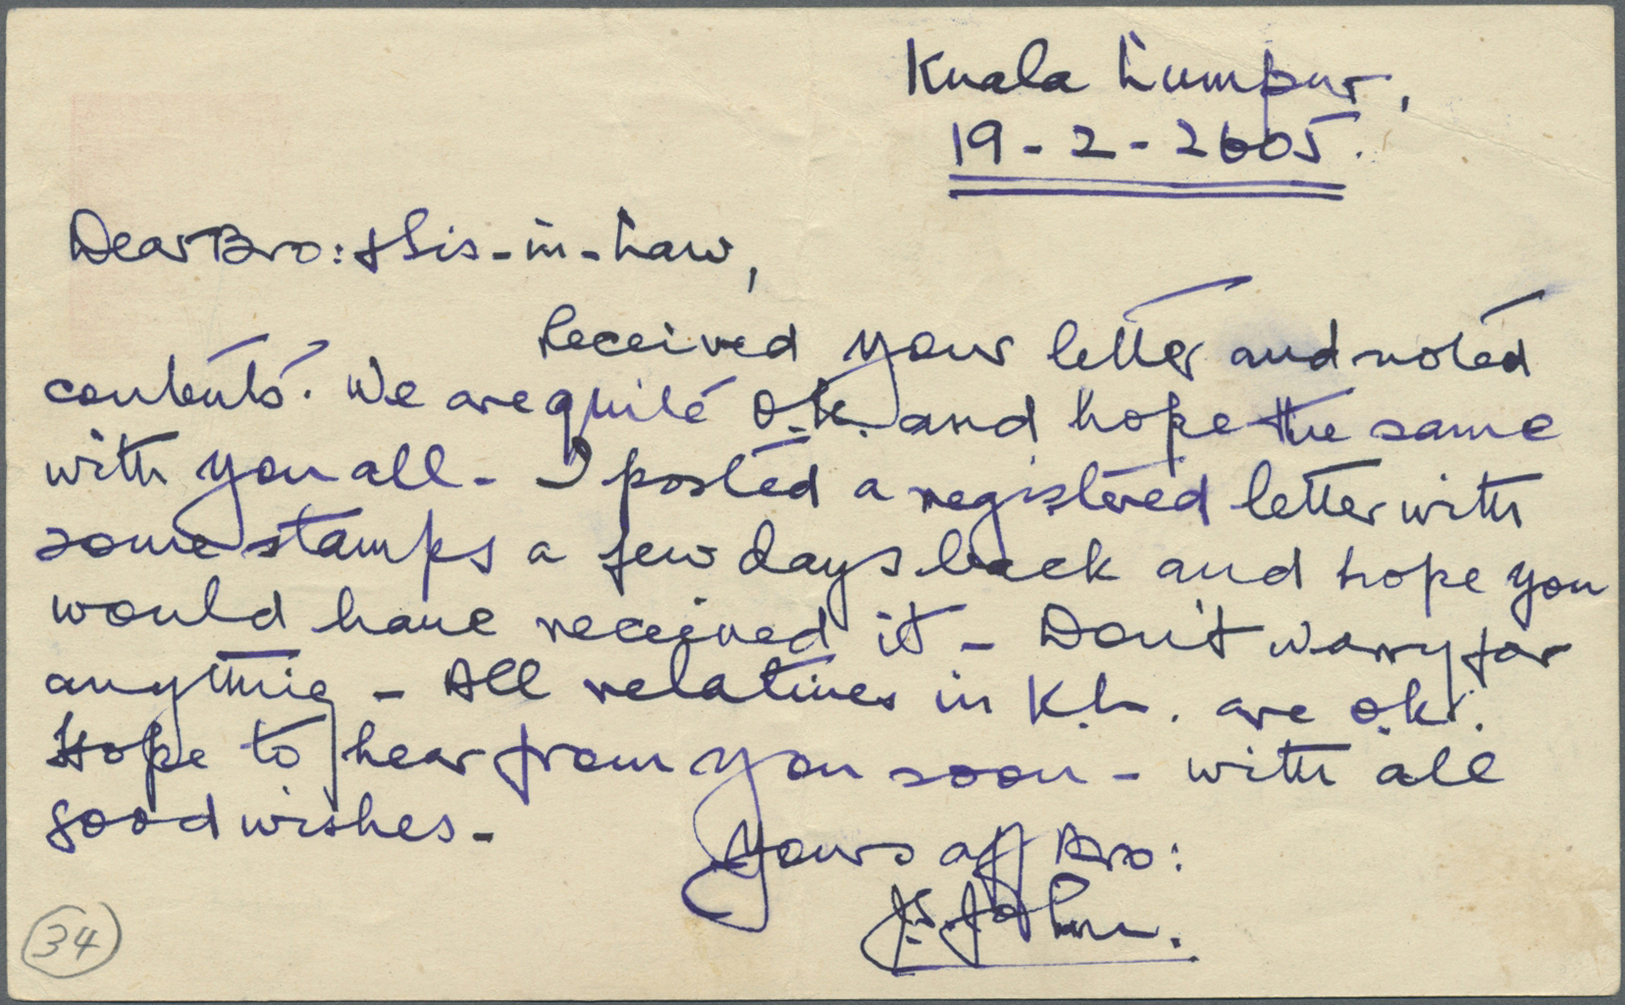 Kuala Lumpur,
19-2-2605.
Dear Bro: & Sis-in-Law,
Received your letter and noted
contents. We are quite O.K. and hope the same
with you all - I posted a registered letter with
some stamps a few days back and hope you
would have received it - Don't worry for
anything - All relatives in K.L. are O.K.
Hope to hear from you soon - with all
good wishes -
Yours aff Bro:
John.
34